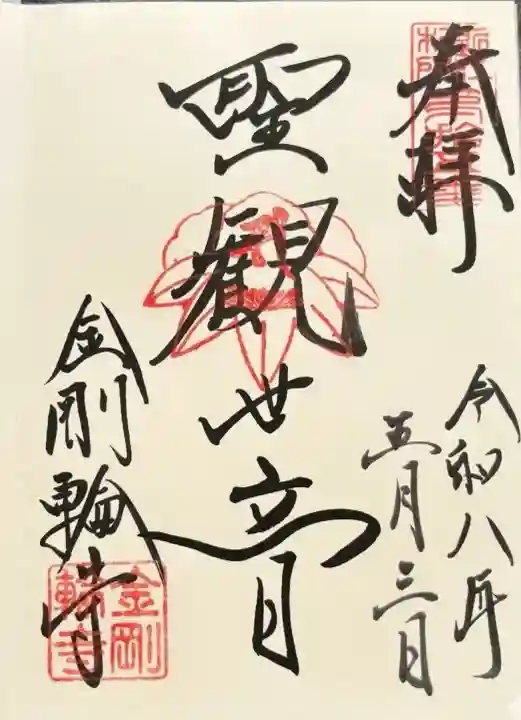 奉拝
令和八年
五月三日
聖観世音
金剛輪寺
金剛
輪寺